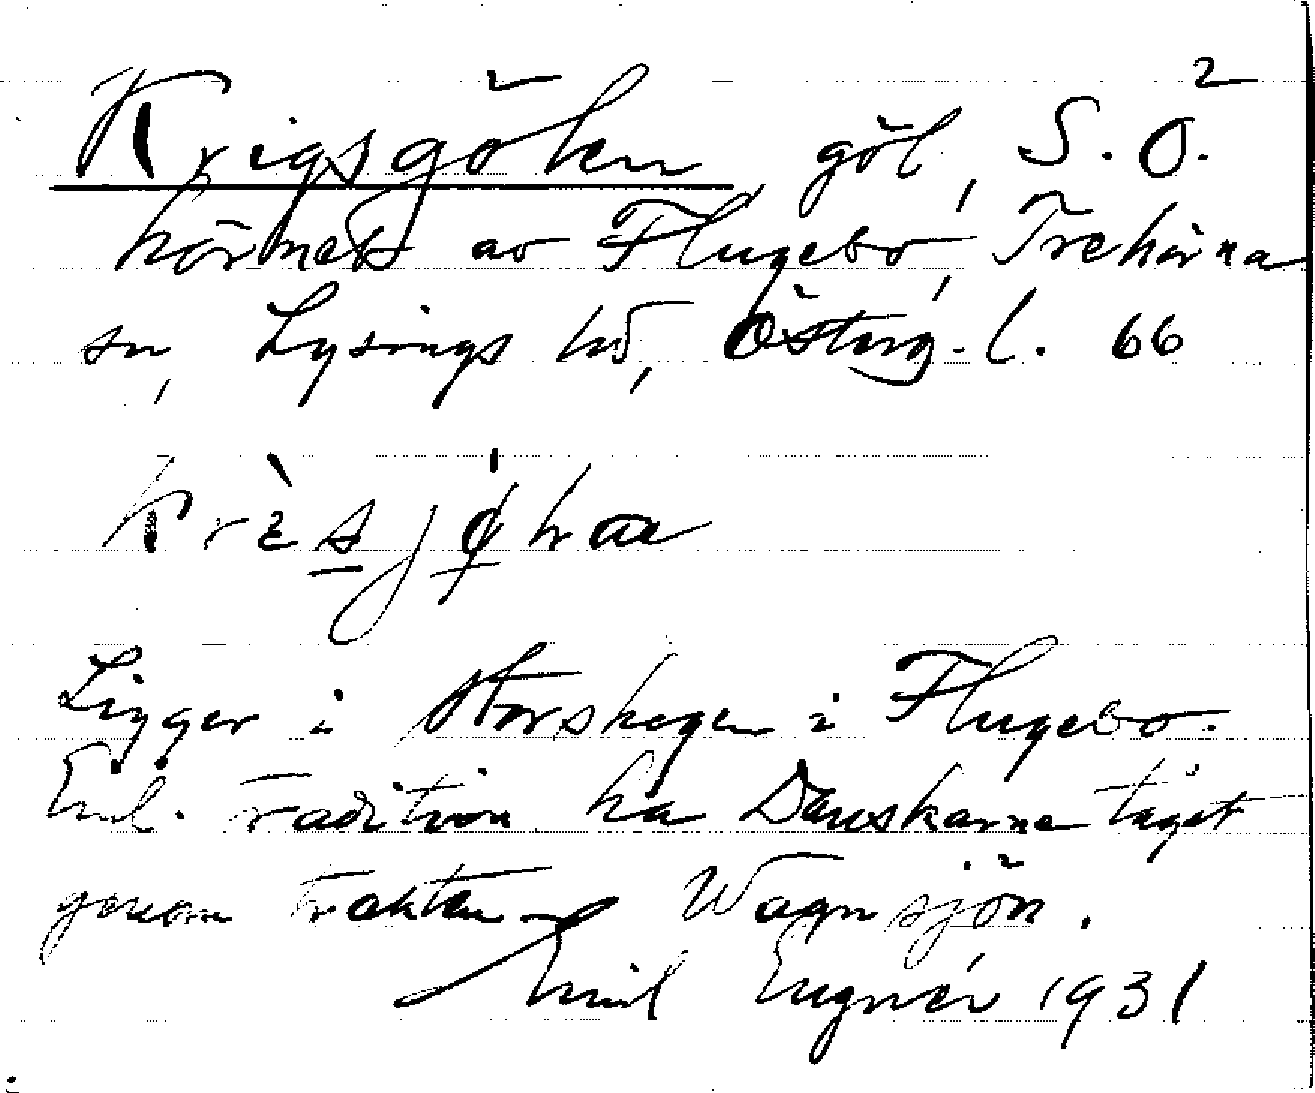 2
Krigsgölen, göl, S. Ö.
hörnet av Flugebo, Trehörna
sn, Lysings hd, Österg. l. 66
Ligger i Storskogen i Flugebo.
Enl. tradition ha Danskarne tågat
genom trakten. Wagnsjön.
Emil Eugnér 1931